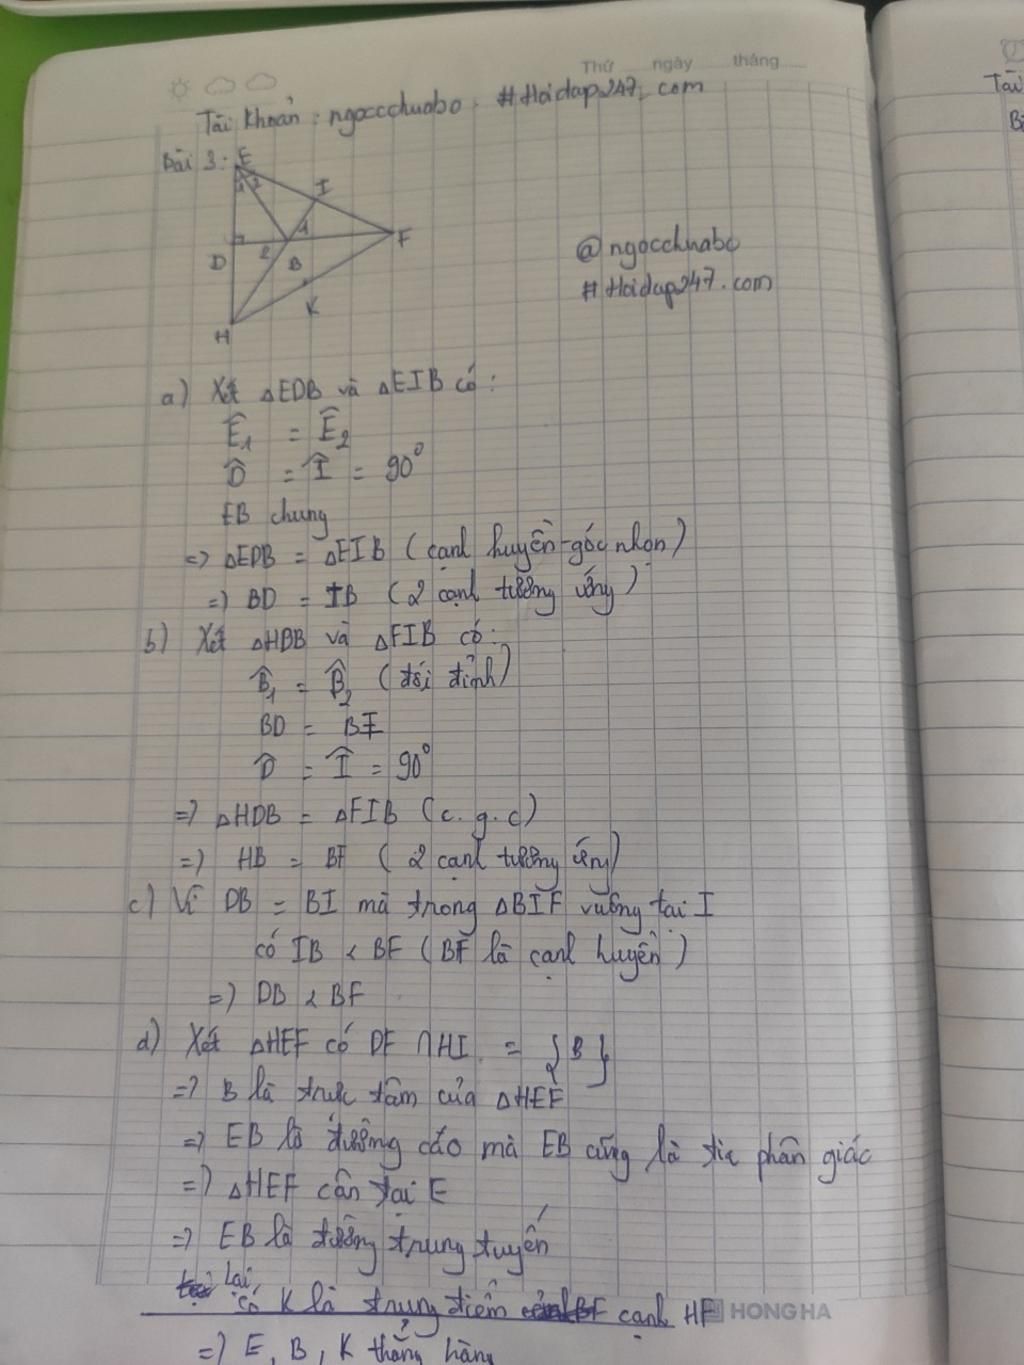 Thứ ngày tháng
Tài khoản : ngoccchuabo . #Hoidap247.com
Bài 3:
E
1 2
I
1
F
D
2
B
K
H
@ngocchuabo
#Hoidap247.com
a) Xét ΔEDB và ΔEIB có:
Ê₁ = Ê₂
D̂ = Î = 90°
EB chung
=> ΔEDB = ΔEIB (cạnh huyền-góc nhọn)
=> BD = IB (2 cạnh tương ứng)
b) Xét ΔHDB và ΔFIB có:
B̂₁ = B̂₂ (đối đỉnh)
BD = BI
D̂ = Î = 90°
=> ΔHDB = ΔFIB (c.g.c)
=> HB = BF (2 cạnh tương ứng)
c) Vì DB = BI mà trong ΔBIF vuông tại I
có IB < BF (BF là cạnh huyền)
=> DB < BF
d) Xét ΔHEF có DF ∩ HI = {B}
=> B là trực tâm của ΔHEF
=> EB là đường cáo mà EB cũng là tia phân giác
=> ΔHEF cân tại E
=> EB là đường trung tuyến
Lại
có K là trung điểm BF cạnh HF
HONG HA
=> E, B, K thẳng hàng
Tài